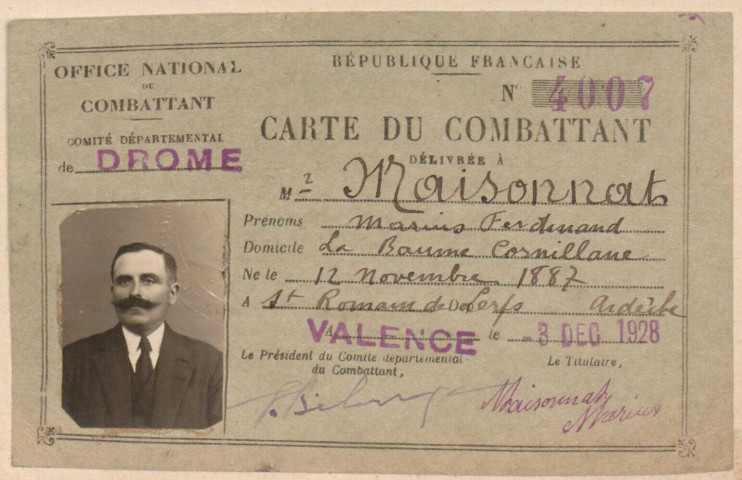 OFFICE NATIONAL
DU
COMBATTANT
COMITÉ DÉPARTEMENTAL
de DROME
RÉPUBLIQUE FRANÇAISE
N° 4007
CARTE DU COMBATTANT
DÉLIVRÉE À
Mr Maisonnat
Prénoms Marius Ferdinand
Domicile La Baume Cornillane
Né le 12 Novembre 1887
A St Romain de Lerps Ardèche
A VALENCE le -3 DEC 1928
Le Président du Comité départemental
du Combattant,
Le Titulaire,
Maisonnat
Marius